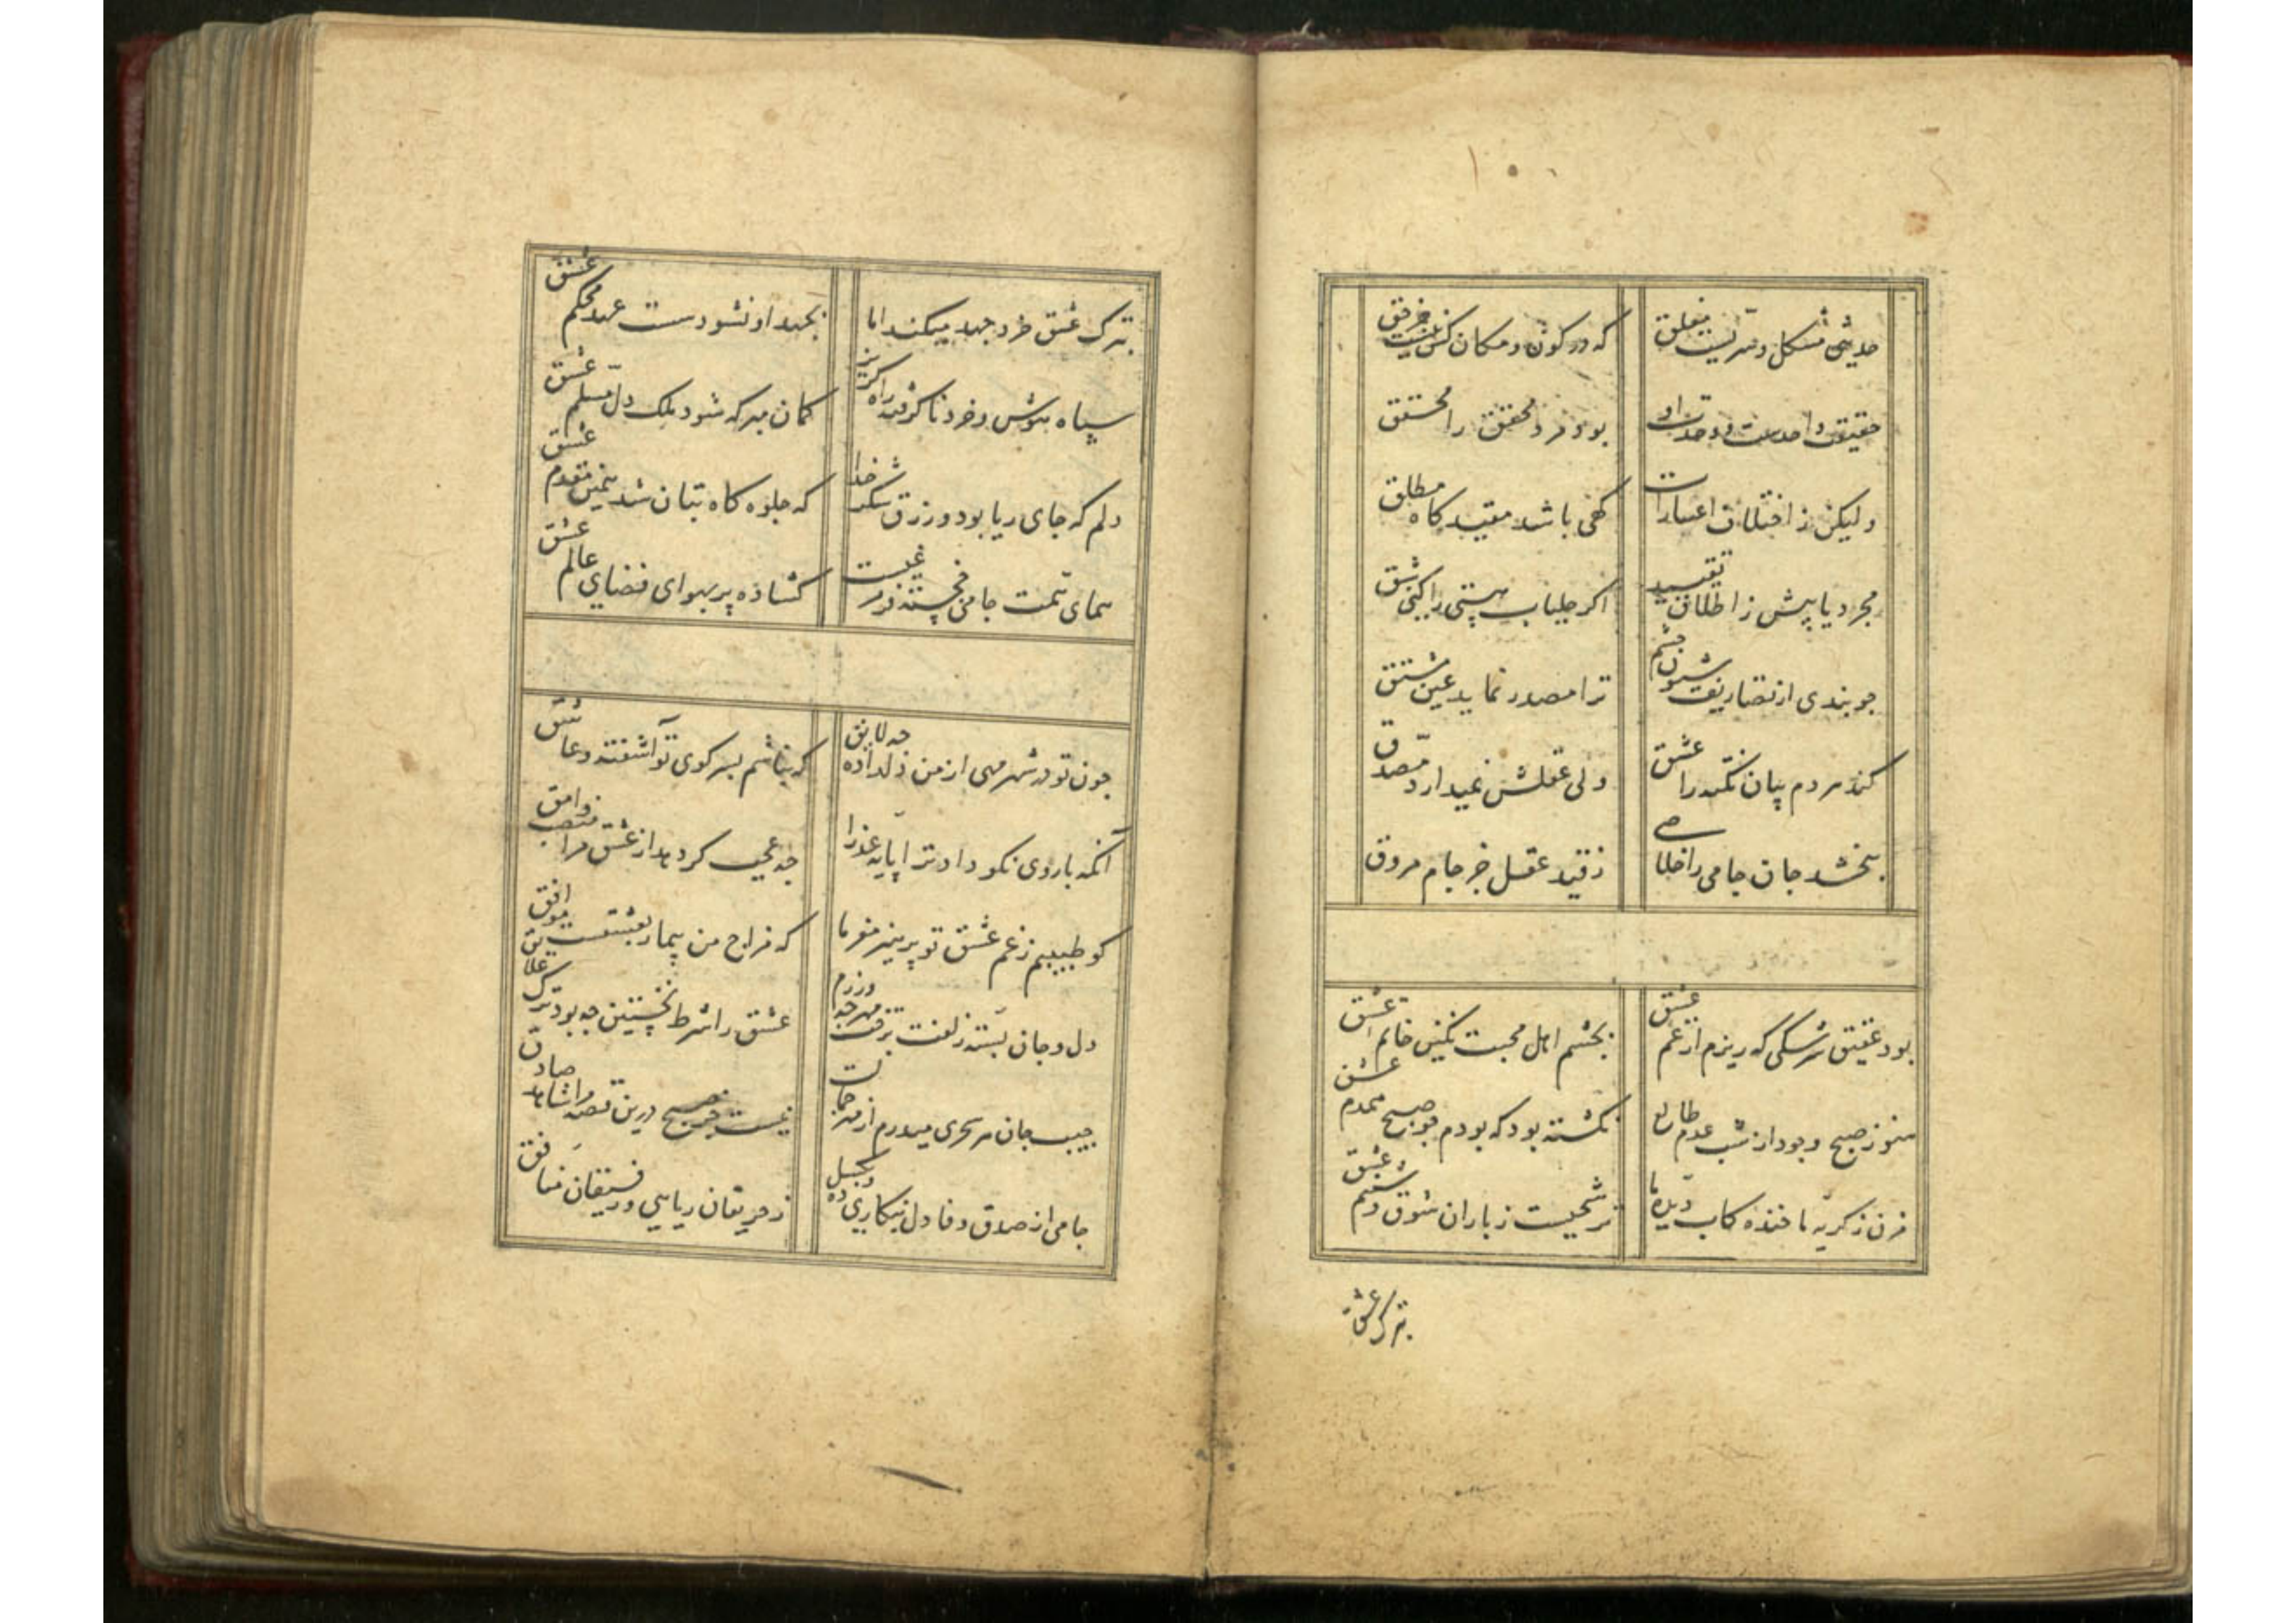 حدیثی مشکل و سریست مغلق
که در کون و مکان کس نیست جز حق
حقیقت واحدست و وحدت او
بود نزد محقق را محقق
ولیکن ز اختلاف اعتبارات
گهی باشد مقید گاه مطلق
مجرد یابیش ز اطلاق و تقیید
اگر جلباب هستی را کنی شق
چو بندی از تصاریف شئون چشم
ترا مصدر نماید عین مشتق
کند هر دم بیان نکته را عشق
ولی عقلش نمیدارد مصدق
نبخشد جان جامی را خلاصی
ز قید عقل جز جام مروق
بود عقیق سرشکی که ریزم از غم عشق
بچشم اهل محبت نگین خاتم عشق
هنوز صبح وجود از شب عدم طالع
نگشته بود که بودم چو صبح محرم عشق
مزن ز گریه ما خنده کاب دیده ما
ترشحیست ز باران شوق و شبنم عشق
بترک عشق
بترک عشق خرد جهد میکند اما
بجهد او نشود سست عهد محکم عشق
سپاه هوش و خرد ناگرفته راه گریز
گمان مبر که شود ملک دل مسلم عشق
دلم که جای ریا بود و رزق شکر خدا
که جلوه گاه بتان شد بیمن مقدم عشق
همای همت جامی خجسته مرغیست
گشاده پر بهوای فضای عالم عشق
چون تو در شهر مهی از من دلداده چه لایق
که نباشم بسر کوی تو آشفته و عاشق
آنکه با روی نکو داد ترا پایه عذرا
چه عجب گر دهد از عشق مرا منصب وامق
گو طبیبم ز غم عشق تو پرهیز مفرما
که مزاج من بیمار بعشقست موافق
دل و جان بسته زلفت بتو مهر چه ورزم
عشق را شرط نخستین چه بود ترک علایق
جیب جان هر سحری میدرم از مهر جمالت
نیست جز صبح درین قصه مرا شاهد صادق
جامی از صدق و وفا دل نیکاری ده و بگسل
ز حریفان ریایی و رفیقان منافق